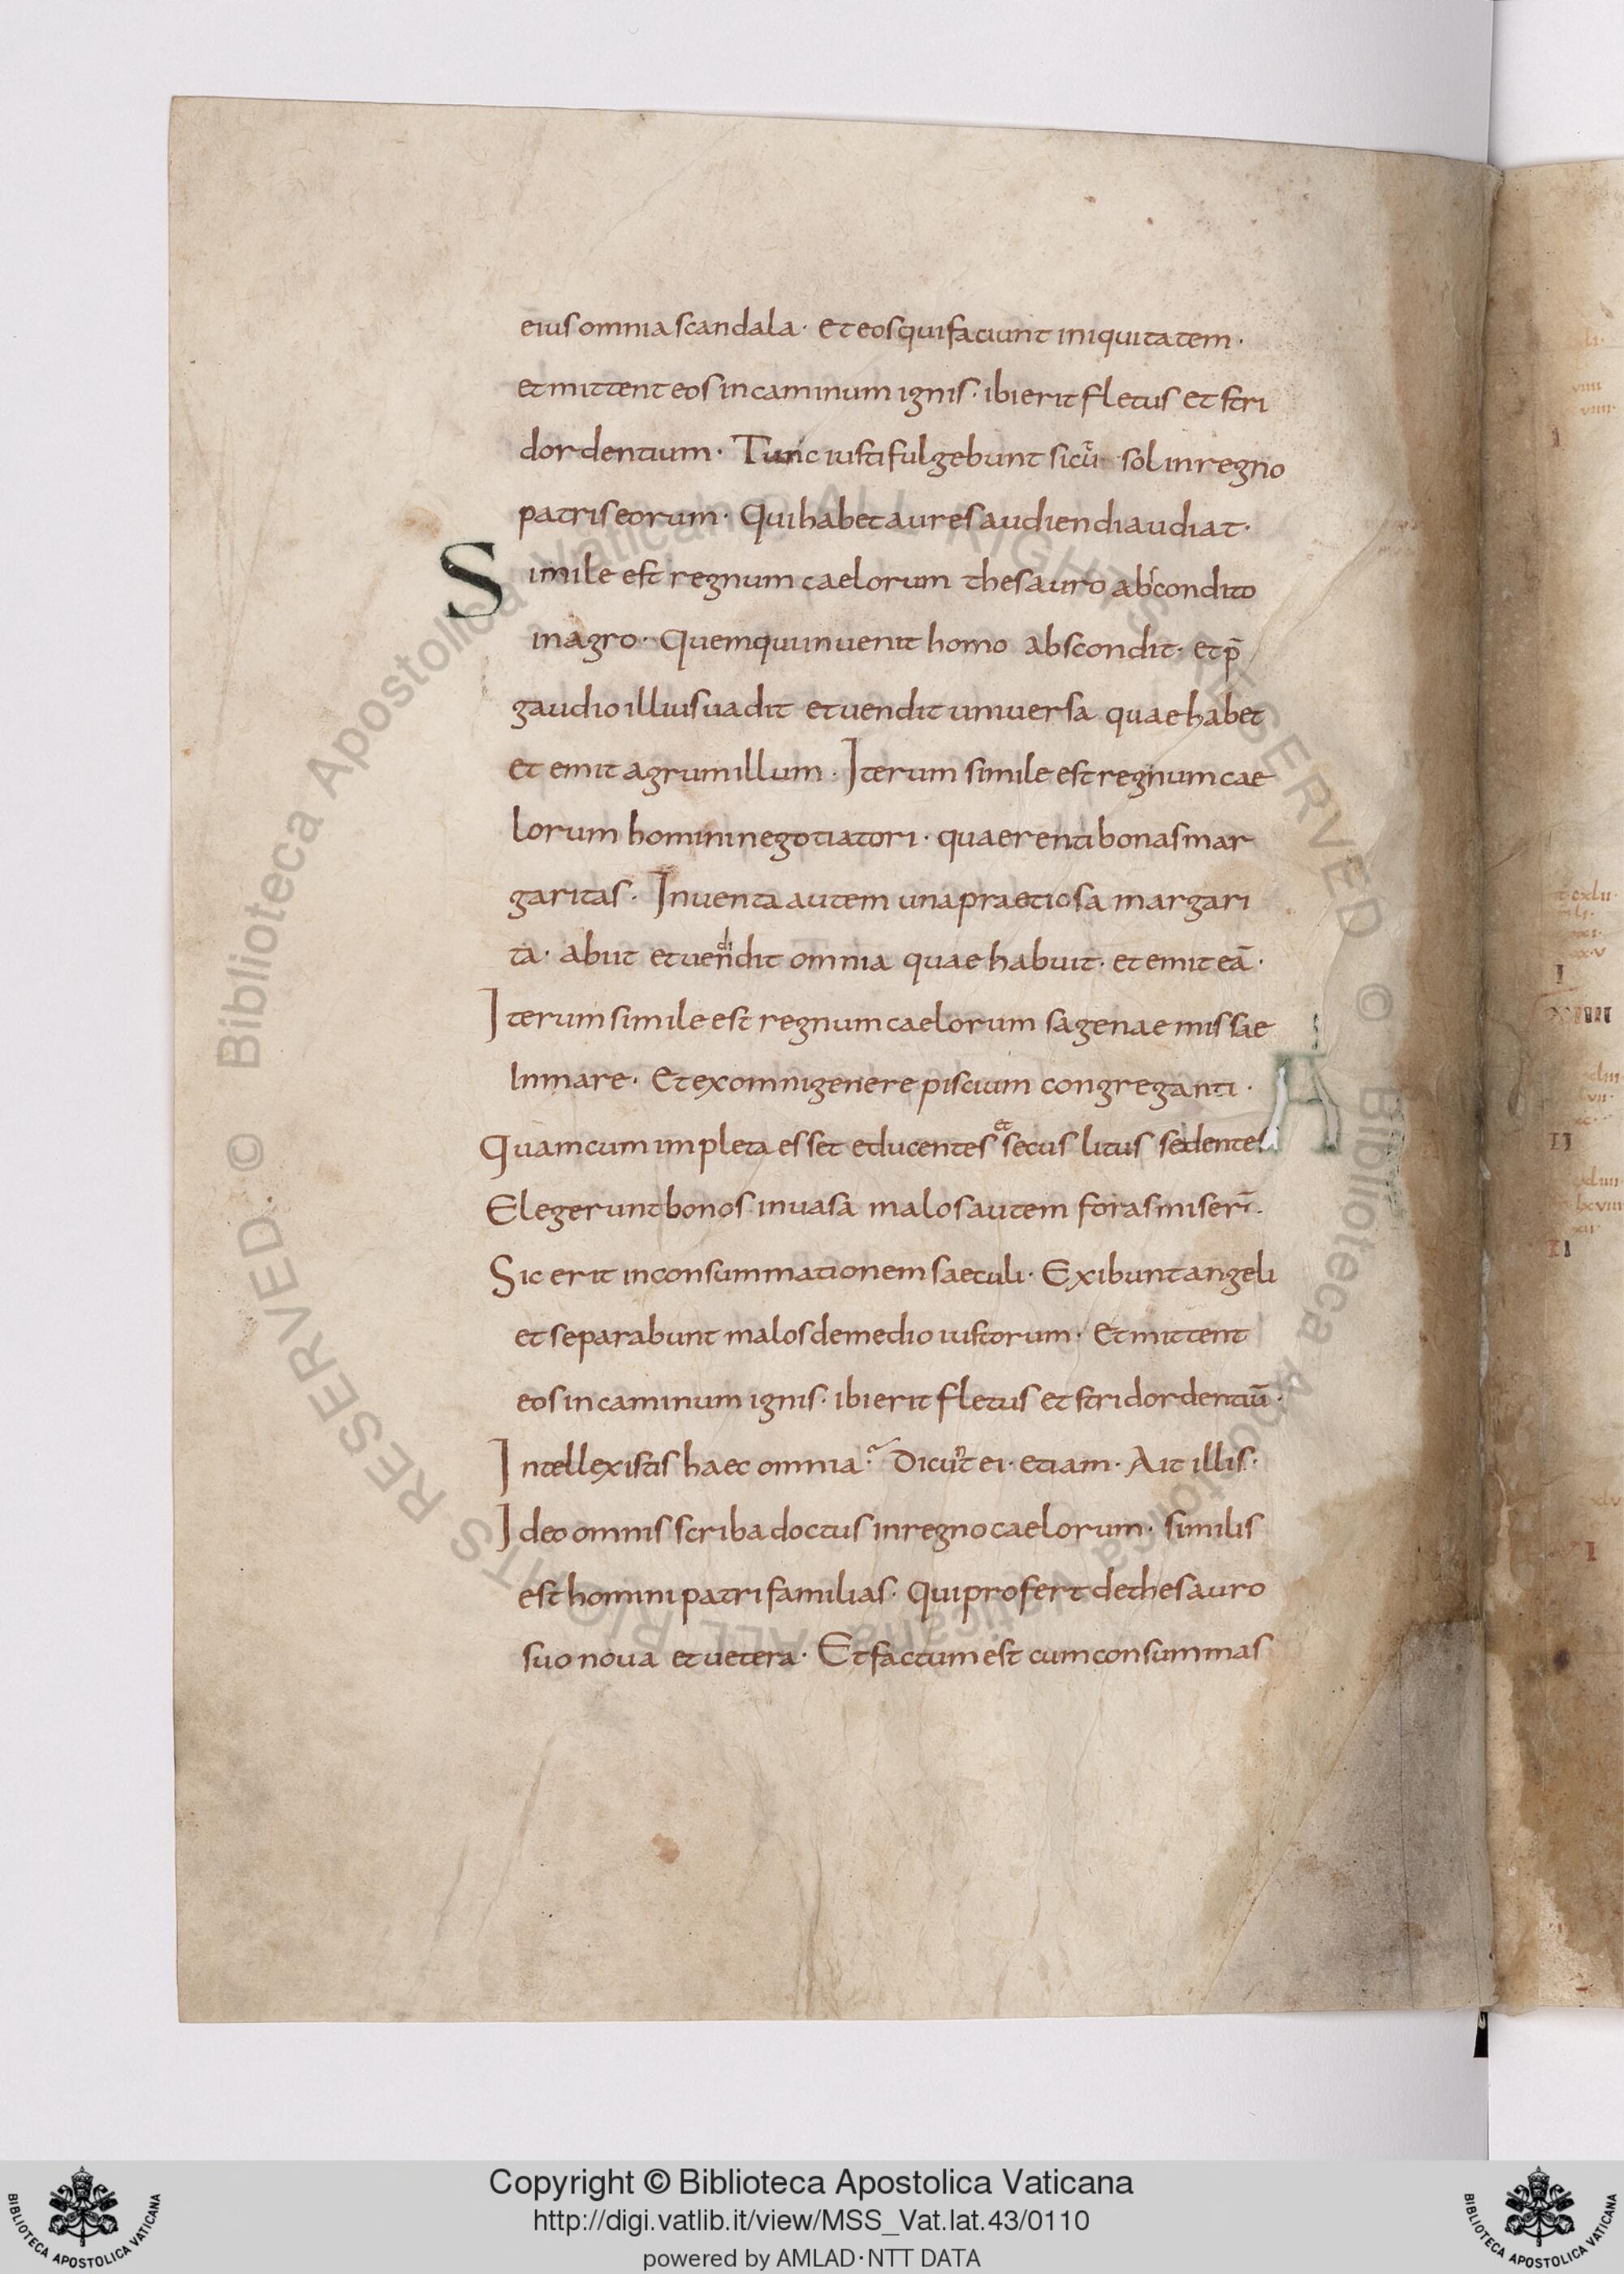 eius omnia scandala· et eos qui faciunt iniquitatem·
et mittent eos in caminum ignis· ibi erit fletus et stri
dor dentium· Tunc iusti fulgebunt sicū sol in regno
patris eorum· Qui habet aures audiendi audiat·
Simile est regnum caelorum thesauro abscondito
in agro· Quem qui inuenit homo abscondit· et p̄
gaudio illius uadit et uendit uniuersa quae habet
et emit agrum illum· Iterum simile est regnum cae
lorum homini negotiatori· quaerenti bonas mar
garitas· Inuenta autem una praetiosa margari
ta· abiit et uendidit omnia quae habuit· et emit eā·
Iterum simile est regnum caelorum sagenae missae
In mare· Et ex omni genere piscium congreganti·
Quam cum impleta esset educentes et secus litus sedentes
Elegerunt bonos in uasa malos autem foras miser̄·
Sic erit in consummationem saeculi· Exibunt angeli
et separabunt malos de medio iustorum· Et mittent
eos in caminum ignis· ibi erit fletus et stridor dentiū·
Intellexistis haec omnia? Dicunt ei· etiam· Ait illis·
Ideo omnis scriba doctus in regno caelorum· similis
est homini patri familias· qui profert de thesauro
suo noua et uetera· Et factum est cum consummas
Copyright © Biblioteca Apostolica Vaticana
http://digi.vatlib.it/view/MSS_Vat.lat.43/0110
powered by AMLAD·NTT DATA
BIBLIOTECA APOSTOLICA VATICANA
BIBLIOTECA APOSTOLICA VATICANA
© Biblioteca Apostolica Vaticana ALL RIGHTS RESERVED
© Biblioteca Apostolica Vaticana ALL RIGHTS RESERVED